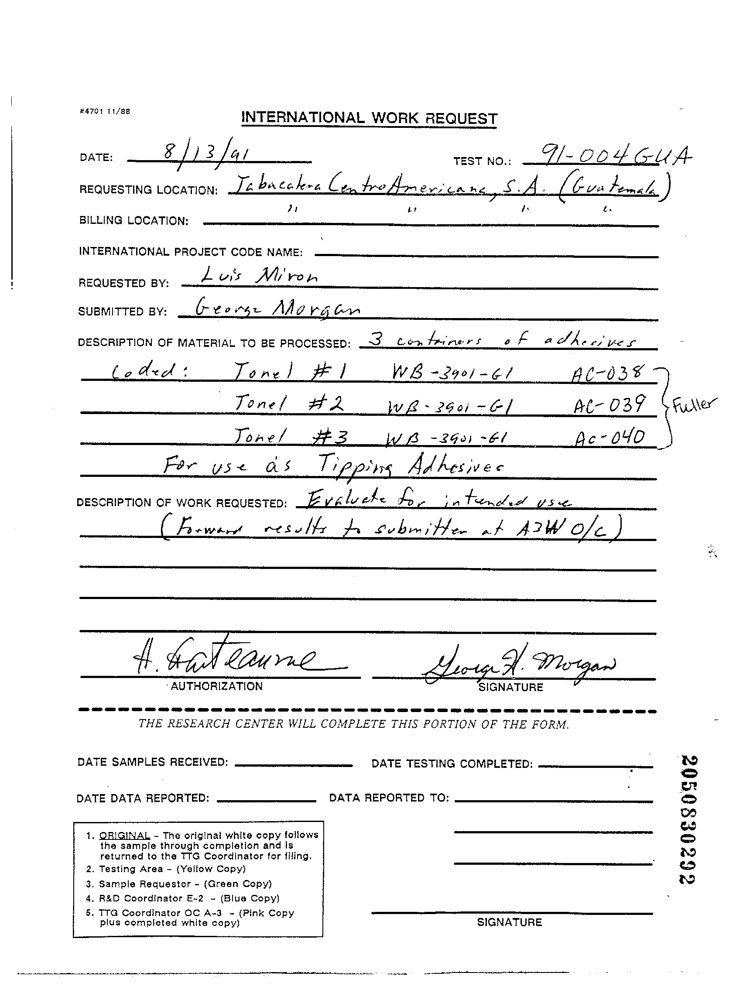 #4701 11/88
INTERNATIONAL WORK REQUEST
DATE: 8/13/91 TEST NO.: 91-004GUA
REQUESTING LOCATION: Tabacalera CentroAmericana, S.A. (Guatemala)
BILLING LOCATION: " " " "
INTERNATIONAL PROJECT CODE NAME:
REQUESTED BY: Luis Miron
SUBMITTED BY: George Morgan
DESCRIPTION OF MATERIAL TO BE PROCESSED: 3 containers of adhesives
Coded: Tonel #1 WB-3901-G1 AC-038
Tonel #2 WB-3901-G1 AC-039 Fuller
Tonel #3 WB-3901-G1 AC-040
For use as Tipping Adhesives
DESCRIPTION OF WORK REQUESTED: Evaluate for intended use
(Forward results to submitter at A3W O/C)
H. 
AUTHORIZATION
George H. Morgan
SIGNATURE
THE RESEARCH CENTER WILL COMPLETE THIS PORTION OF THE FORM.
DATE SAMPLES RECEIVED: DATE TESTING COMPLETED:
DATE DATA REPORTED: DATA REPORTED TO:
1. ORIGINAL - The original white copy follows
the sample through completion and is
returned to the TTG Coordinator for filing.
2. Testing Area - (Yellow Copy)
3. Sample Requestor - (Green Copy)
4. R&D Coordinator E-2 - (Blue Copy)
5. TTG Coordinator OC A-3 - (Pink Copy
plus completed white copy)
SIGNATURE
2050830292